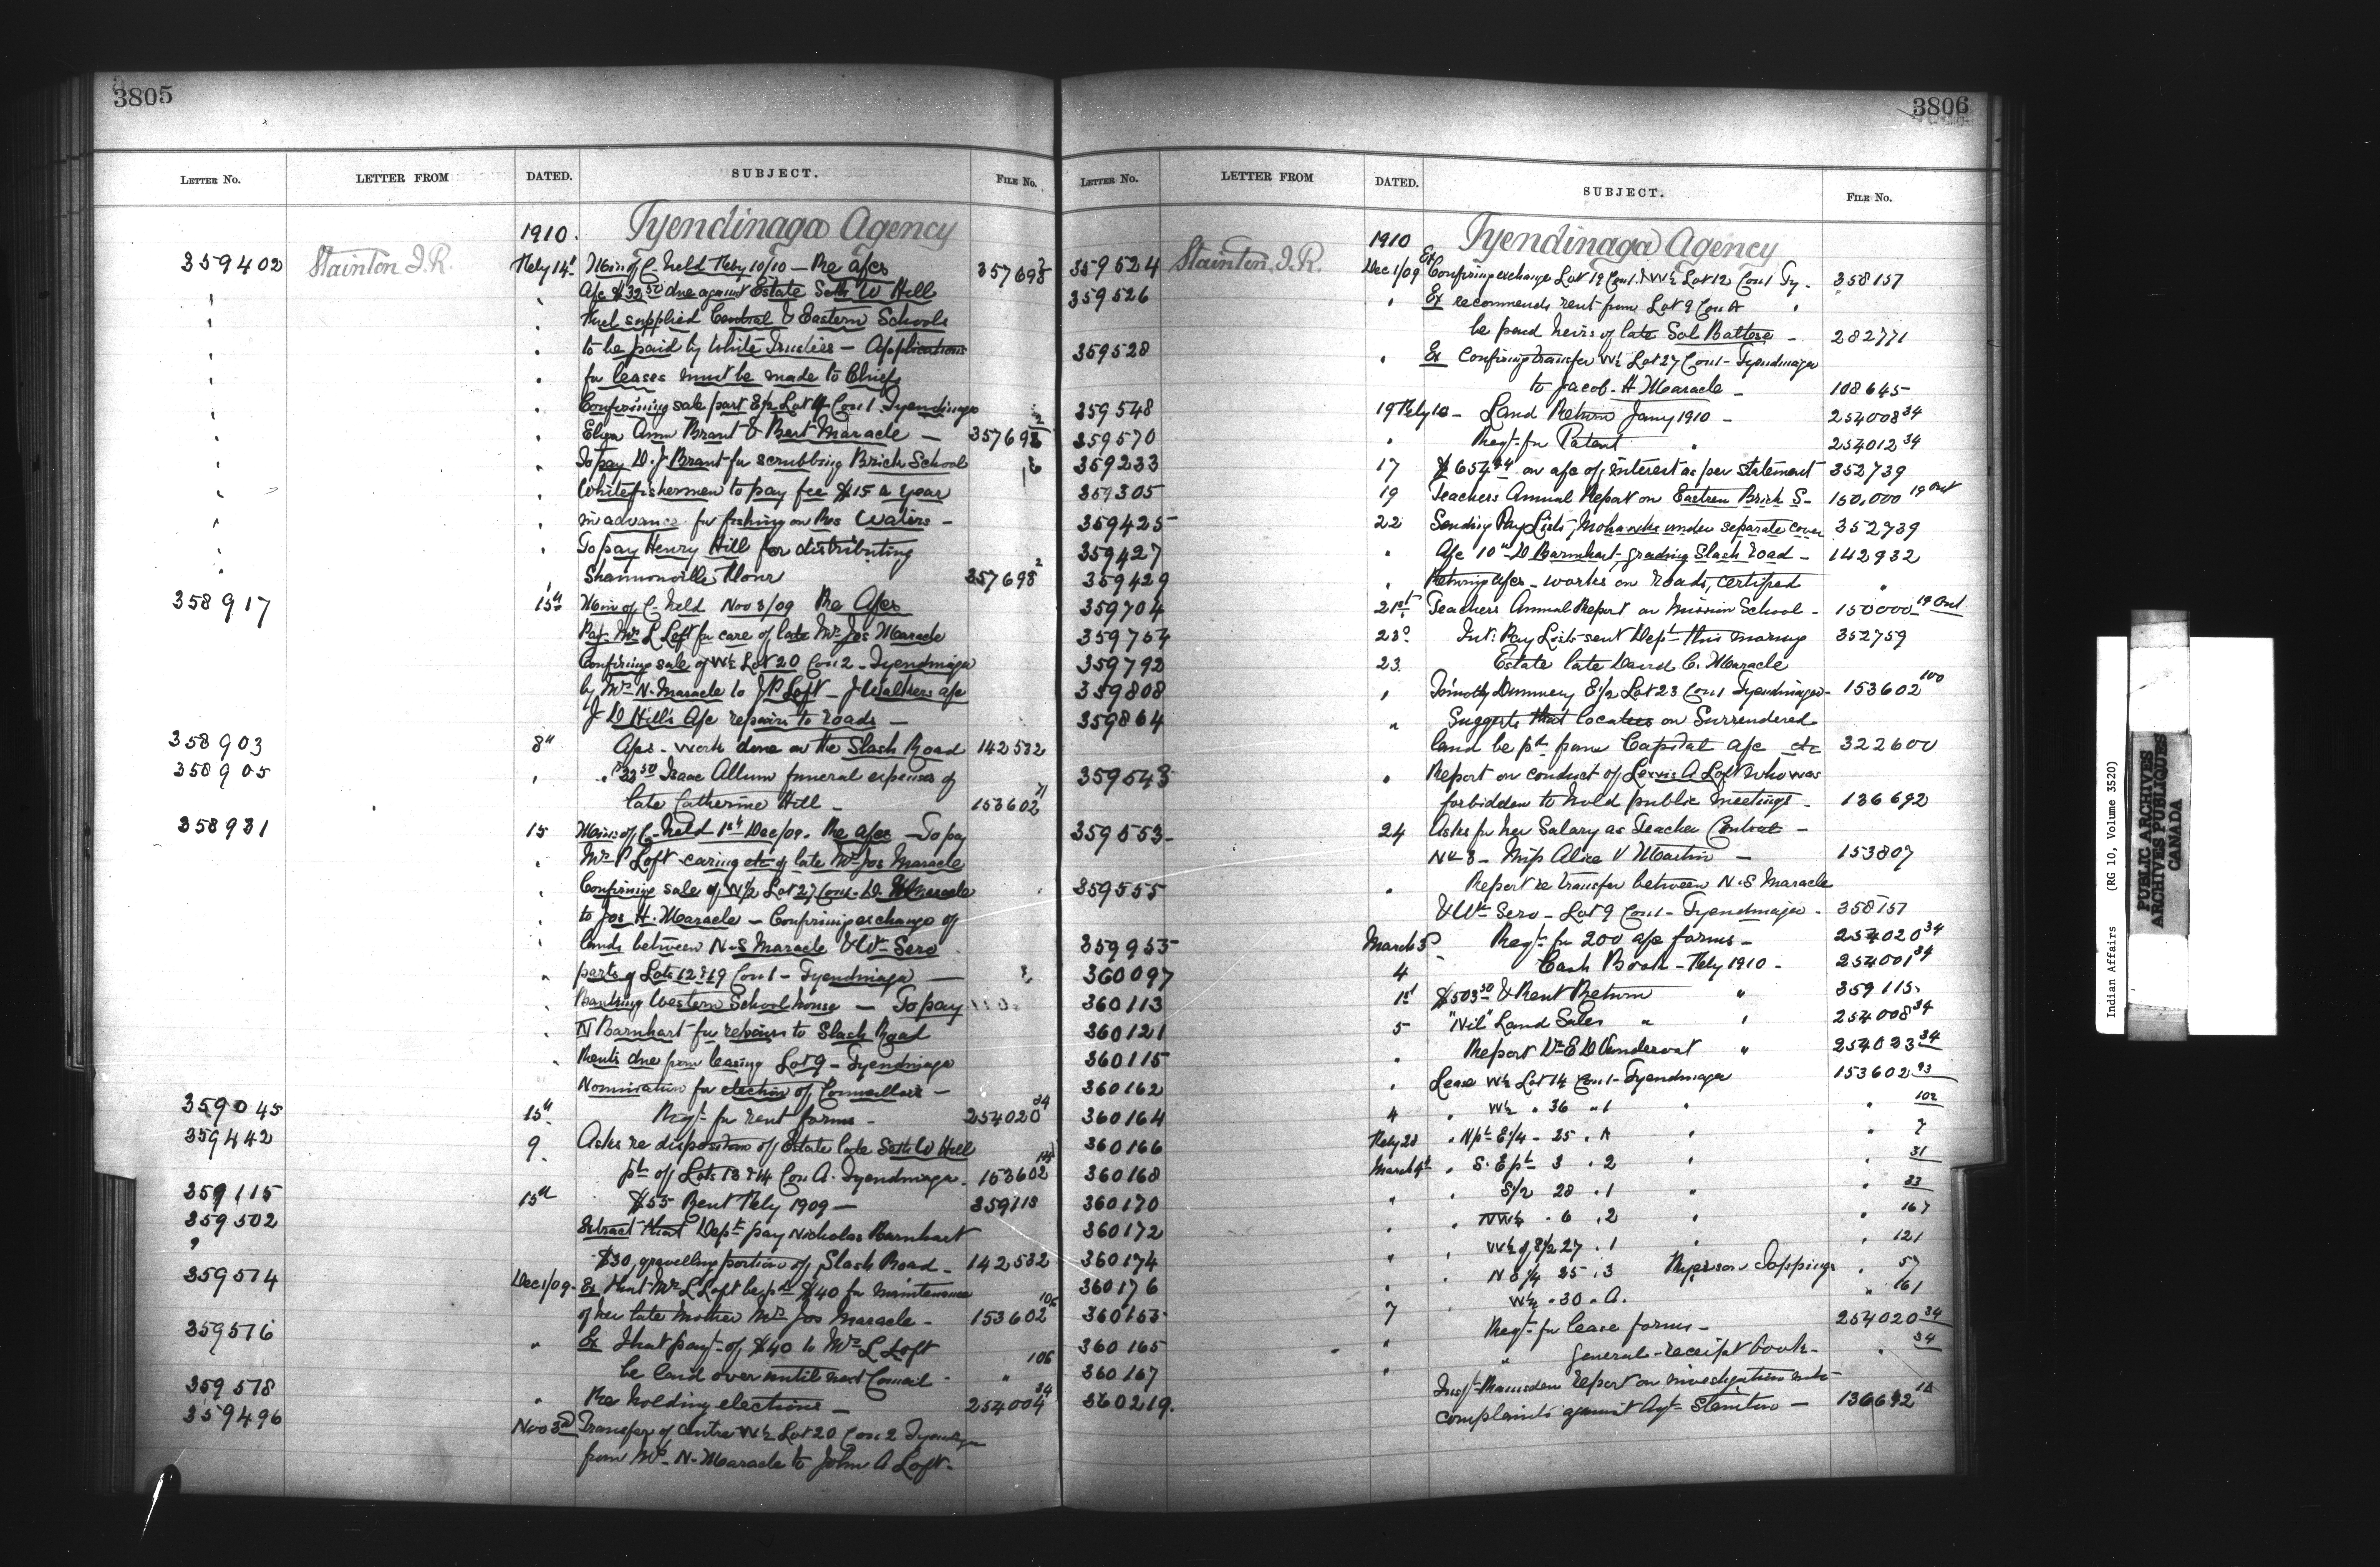 3805
LETTER NO. LETTER FROM DATED. SUBJECT. FILE NO.
1910. Tyendinaga Agency
359402 Stainton J.R. Feby 14" Min of C. held Feby 10/10 — Re a/cs 357698²
" " A/c $32.50 due against Estate Seth W Hill
" " Fuel supplied Central & Eastern Schools
" " to be paid by White Trustees — Applications
" " for leases must be made to Chiefs
" Confirming sale part E/2 Lot 4 Con 1 Tyendinaga
" " Eliza Ann Brant & Bert Maracle — 357698²
" " To pay D. J Brant for scrubbing Brick School
" " White fishermen to pay fee $15 a year
" " in advance for fishing on Res Waters —
" " To pay Henry Hill for distributing
" Shannonville Flour 357698²
358917 15" Min of C. held Nov 3/09 Re A/cs
Pay Mrs L Loft for care of late Mrs Jos Maracle
Confirming sale of W½ Lot 20 Con 2 - Tyendinaga
by Mrs N. Maracle to J P Loft — J Walkers a/c
J D Hill's A/c repairs to roads —
358903 8" A/cs - Work done on the Slash Road 142532
358905 " " $33.50 Isaac Allum funeral expenses of
late Catherine Hill — 153602⁷¹
358931 15 Min of C. held 1st Dec/09. Re a/cs — To pay
" Mrs P Loft caring etc of late Mrs Jos Maracle
" Confirming sale of W½ Lot 27 Con 1 - D. Maracle
" to Jos H. Maracle — Confirming exchange of
" lands between N.S Maracle & Wm Sero
" parts of Lots 12 & 19 Con 1 - Tyendinaga —
" Banking Western School house — To pay
" N Barnhart for repairs to Slash Road
" Rents due from leasing Lot 9 - Tyendinaga
Nomination for election of Councillors —
359045 15" Reqt for rent forms — 254020³⁴
359442 9 Asks re disposition of Estate late Seth W Hill
pt of Lots 13 & 14 Con A. Tyendinaga. 153602
359115 15" $55 Rent Feby 1909 — 359115
359502 Extract that Dept pay Nicholas Barnhart
$30, gravelling portion of Slash Road - 142532
359514 Dec 1/09 - Ex that Mrs L Loft be pd $40 for maintenance
of her late mother Mrs Jos Maracle - 153602¹⁰⁶
359516 " Ex That payt of $40 to Mrs L Loft
be laid over until next Council - " ¹⁰⁶
359518 " Re holding elections — 254004³⁴
359496 Nov 3rd Transfer of entire W½ Lot 20 Con 2 Tyendinaga
from Mrs N. Maracle to John A Loft -
3806
LETTER NO. LETTER FROM DATED. SUBJECT. FILE NO.
1910 Tyendinaga Agency
359524 Stainton J.R. Dec 1/09 Ex Confirming exchange Lot 19 Con 1 & W½ Lot 12 Con 1 Ty- 358157
359526 " Ex recommends rent from Lot 9 Con A "
be paid heirs of late Sol Battese - 282771
359528 " Ex Confirming transfer W½ Lot 27 Con 1 - Tyendinaga
to Jacob. H Maracle — 108645
359548 19 Feby 10 - Land Return Jany 1910 - 254008³⁴
359570 " Reqt for Patent " 254012³⁴
359233 17 $654.44 on a/c of interest as per statement 352739
359305 19 Teachers Annual Report on Eastern Brick S- 150,000 19 Ont
359425 22 Sending Pay Lists, Mohawks under separate cover 352739
359427 " A/c 10.00 D Barnhart, grading Slash road - 142932
359429 " Returning a/cs - works on roads, certified "
359704 21st Teachers Annual Report on Mission School - 150000 19 Ont
359754 23d Int: Pay Lists sent Dept this morning 352759
359792 23 Estate late David C. Maracle
359808 " Timothy Dummery E½ Lot 23 Con 1 Tyendinaga - 153602¹⁰⁰
359864 " Suggests that locatees on Surrendered
land be pd from Capital a/c etc 322600
359543 " Report on conduct of Lewis A Loft who was
forbidden to hold public meetings - 136692
359553 24 Asks for her Salary as Teacher Central —
No 3 - Miss Alice V Martin — 153807
359555 " Report re transfer between N.S Maracle
& Wm Sero - Lot 9 Con 1 - Tyendinaga - 358157
359955 March 3d Reqt for 200 a/c forms — 254020³⁴
360097 4 Cash Book - Feby 1910 - 254001³⁴
360113 1st $503.50 & Rent Return " 359115
360121 5 "Nil" Land Sales " " 254008³⁴
360115 " Report Dr E D Vandervoort " 254023³⁴
360162 " Lease W½ Lot 14 Con 1 - Tyendinaga 153602⁹³
360164 4 " W½ " 36 " 1 " " 102
360166 Feby 28 " N pt E¼ - 25 " A " " 7
360168 March 4th " S. E pt 3 " 2 " " 31
360170 " " S/2 28 " 1 " " 33
360172 " " NW¼ " 6 " 2 " " 167
360174 " " W½ of E½ 27 " 1 " 121
360176 " " N E¼ 25 " 3 Ryerson Toppings " 57
" W½ " 30 " A. " 161
360163 7 Reqt for lease forms — 254020³⁴
360165 " " general receipt book - " ³⁴
360167 "
360219. Inspt Ramsden report on investigation into
complaints against Agt Stainton — 136692
Indian Affairs (RG 10, Volume 3520)
PUBLIC ARCHIVES
ARCHIVES PUBLIQUES
CANADA